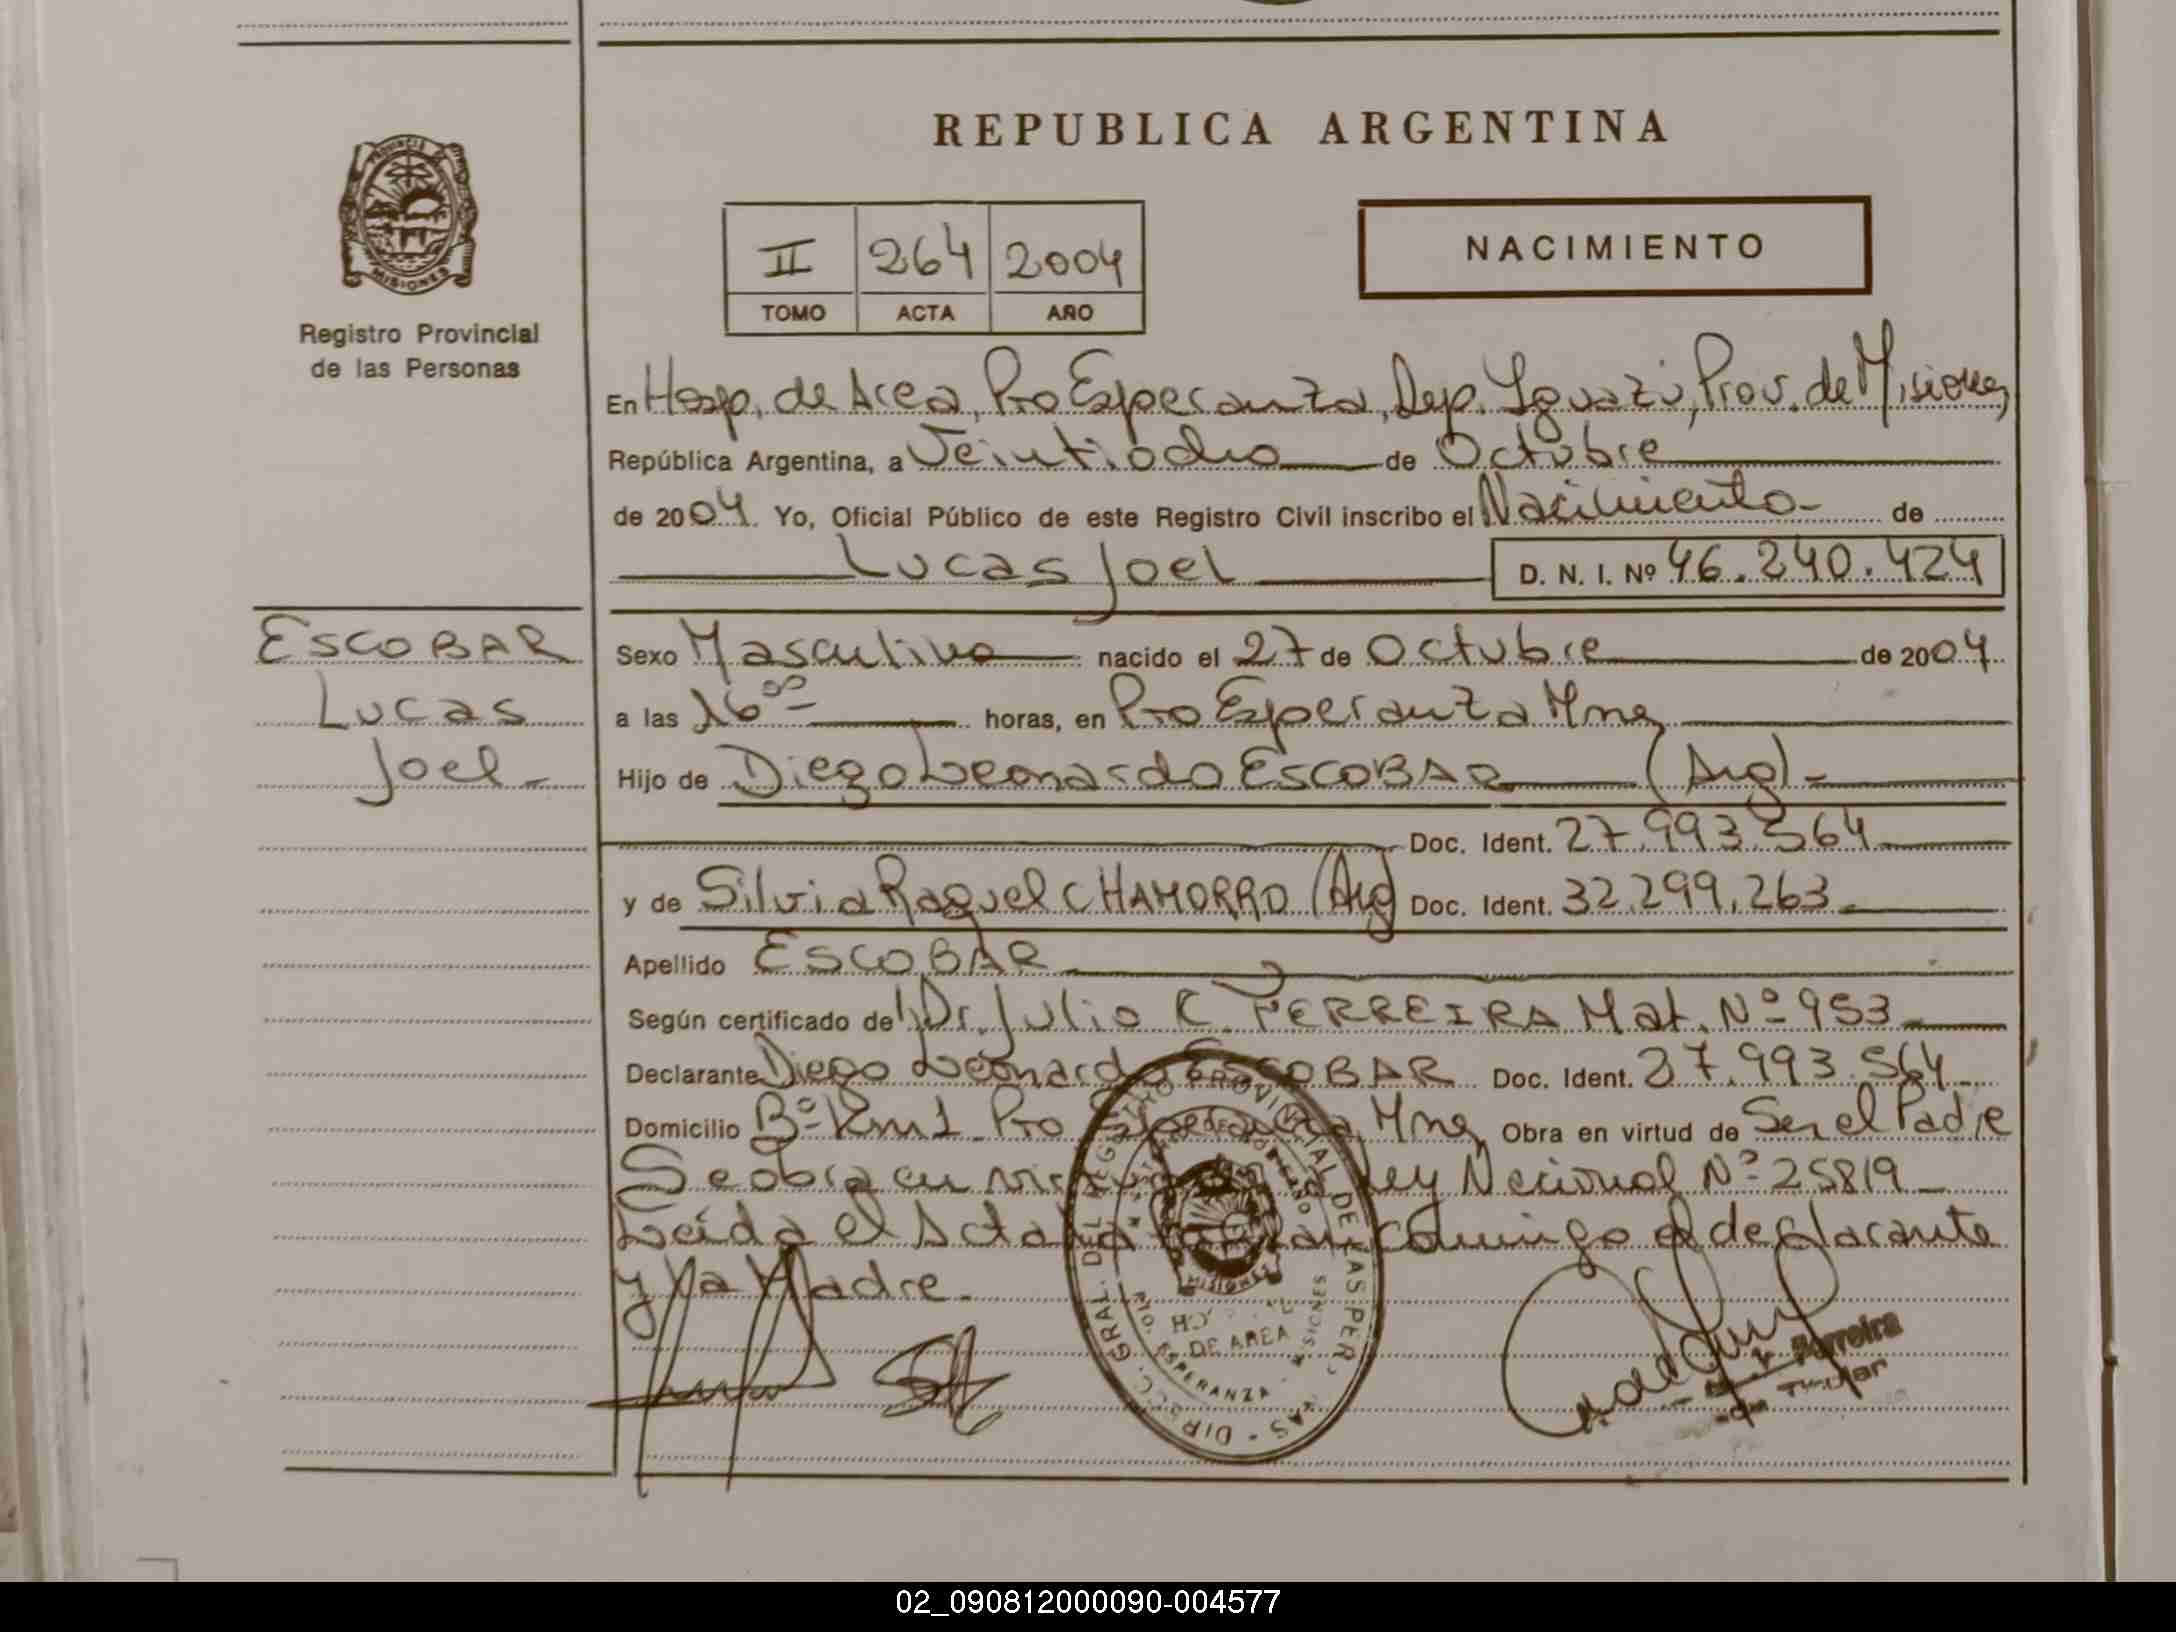 REPUBLICA ARGENTINA
PROVINCIA DE
MISIONES
Registro Provincial
de las Personas
II 264 2004
TOMO ACTA AÑO
NACIMIENTO
En Hosp. de Area, Pto Esperanza, Dep. Iguazú, Prov. de Misiones
República Argentina, a Veintiocho de Octubre
de 2004. Yo, Oficial Público de este Registro Civil inscribo el Nacimiento de
Lucas Joel D. N. I. Nº 46.240.424
ESCOBAR
Lucas
Joel
Sexo Masculino nacido el 27 de Octubre de 2004
a las 16 00 horas, en Pto Esperanza Mnes
Hijo de Diego Leonardo ESCOBAR (Arg)
Doc. Ident. 27.993.564
y de Silvia Raquel CHAMORRO (Arg) Doc. Ident. 32.299.263
Apellido ESCOBAR
Según certificado del Dr. Julio C. FERREIRA Mat. Nº 953
Declarante Diego Leonardo ESCOBAR Doc. Ident. 27.993.564
Domicilio Bº Km 1 Pto Esperanza Mnes Obra en virtud de Ser el Padre
Se obra en virtud de la Ley Nacional Nº 25819
Leída el Acta la firman conmigo el declarante
y la Madre.
DIRECC. GRAL. DEL REGISTRO PROVINCIAL DE LAS PERSONAS
MISIONES
DE AREA
ESPERANZA - MISIONES
Ferreira
Titular
02_090812000090-004577